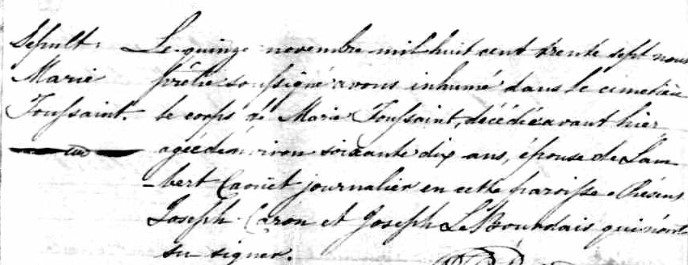 Sepult.
Marie
Toussaint.
Le quinze novembre mil huit cent trente sept nous
prêtre soussigné avons inhumé dans le cimetière
le corps de Marie Toussaint, décédée avant hier
agée d'environ soixante dix ans, épouse de Lam
-bert Caouet journalier en cette paroisse. Présens
Joseph Caron et Joseph Le Bourdais qui n'ont
su signer.